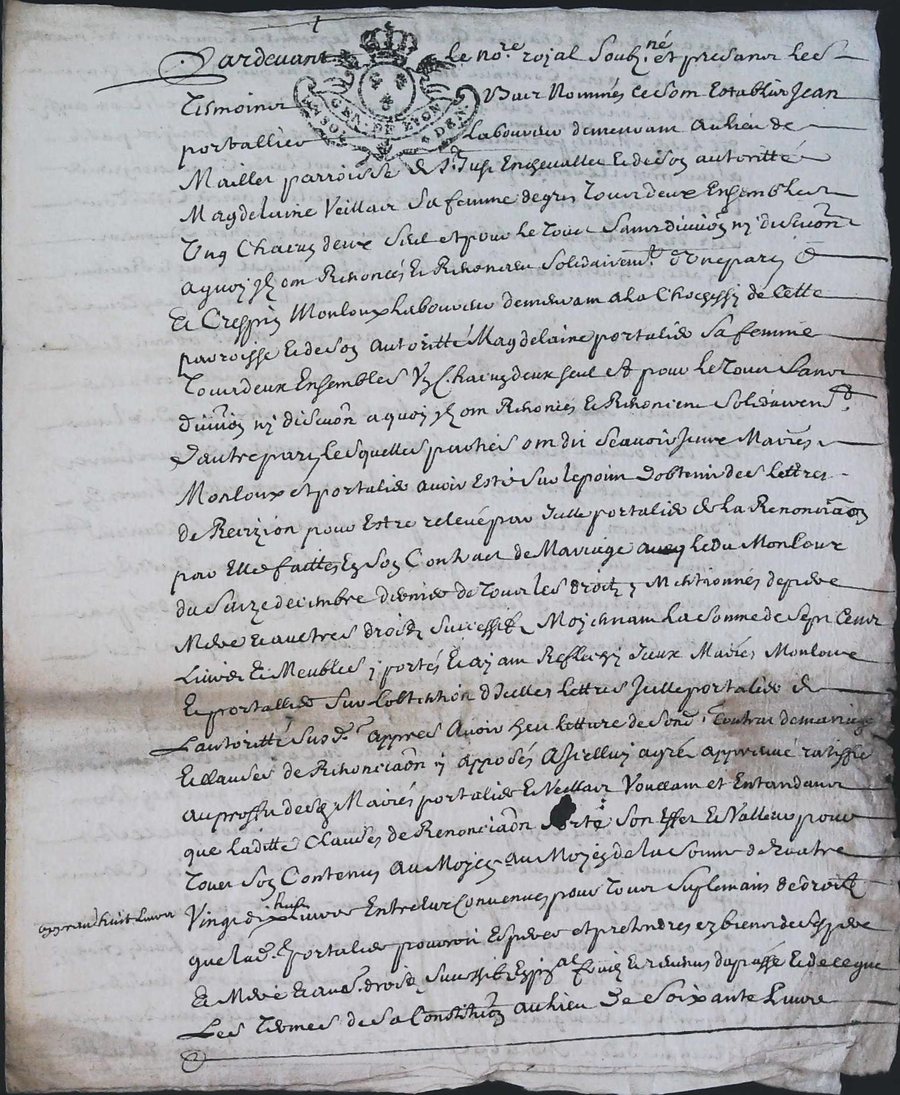 Pardevant le no.re roial soubz.né et presans les
tesmoins bas nommés ce sont establis Jean
GEN. DE LYON
portallier laboureur demeurant au lieu de
Maillet parroisse de s.t Just en chevallet et de son autoritté
Magdelaine Veillas sa femme de gres tous deux ensembles
ung chacun deux seul et pour le tout sans divizion ny discution
a quoy ils ont Renoncés et Renoncent solidairem.t d'une part et
et Crespin Monloux laboureur demeurant a la de cette
parroisse et de son autoritté Magdelaine portalier sa femme
tous deux ensembles un chacun deux seul et pour le tout sans
divizion ny discution a quoy ils ont Renoncés et Renoncent solidairem.t
d'autre part lesquelles parties ont dit sçavoir Iceux Mariés
Monloux et portalier avoir esté sur le point d'obtenir des lettres
de Reizion pour estre relevé par Icelle portalier de la Renonciaõn
par Elle faittes en son Contract de Mariage avecq ledit Monloux
du seize decembre dernier de tous les droits y Mentionnés de pere
Mere et autres droits successifs Moyenant la somme de sept cents
livres et Meubles y portés et ayant Reflechy Iceux Mariés Monloux
et portallier sur l'obtention d'Icelles lettres Icelle portalier de
l'autoritté susd.e appres avoir heu letture de sond.t Contrat de mariage
et clauses de Renonciaõn y apposés a Icelluy agréé approuvé ratiffié
au proffit desd. Mariés portalier et Veillas Voullant et Entandant
que laditte Clauses de Renonciaõn sorte son Effet et Valleur pour
tout son Contenus au Moyen au Moyen de la somme de quatre
vingt dix huit livres Entre eux Convenues pour tout suplemans de droits
huit livres
que lad. portalier pouvoit Esperer et pretendre es biens de ses pere
et Mere et aut.s droits successifs En prin.al fruits et revenus du passé et de ce que
les termes de sa Constitution au lieu de soixante livres